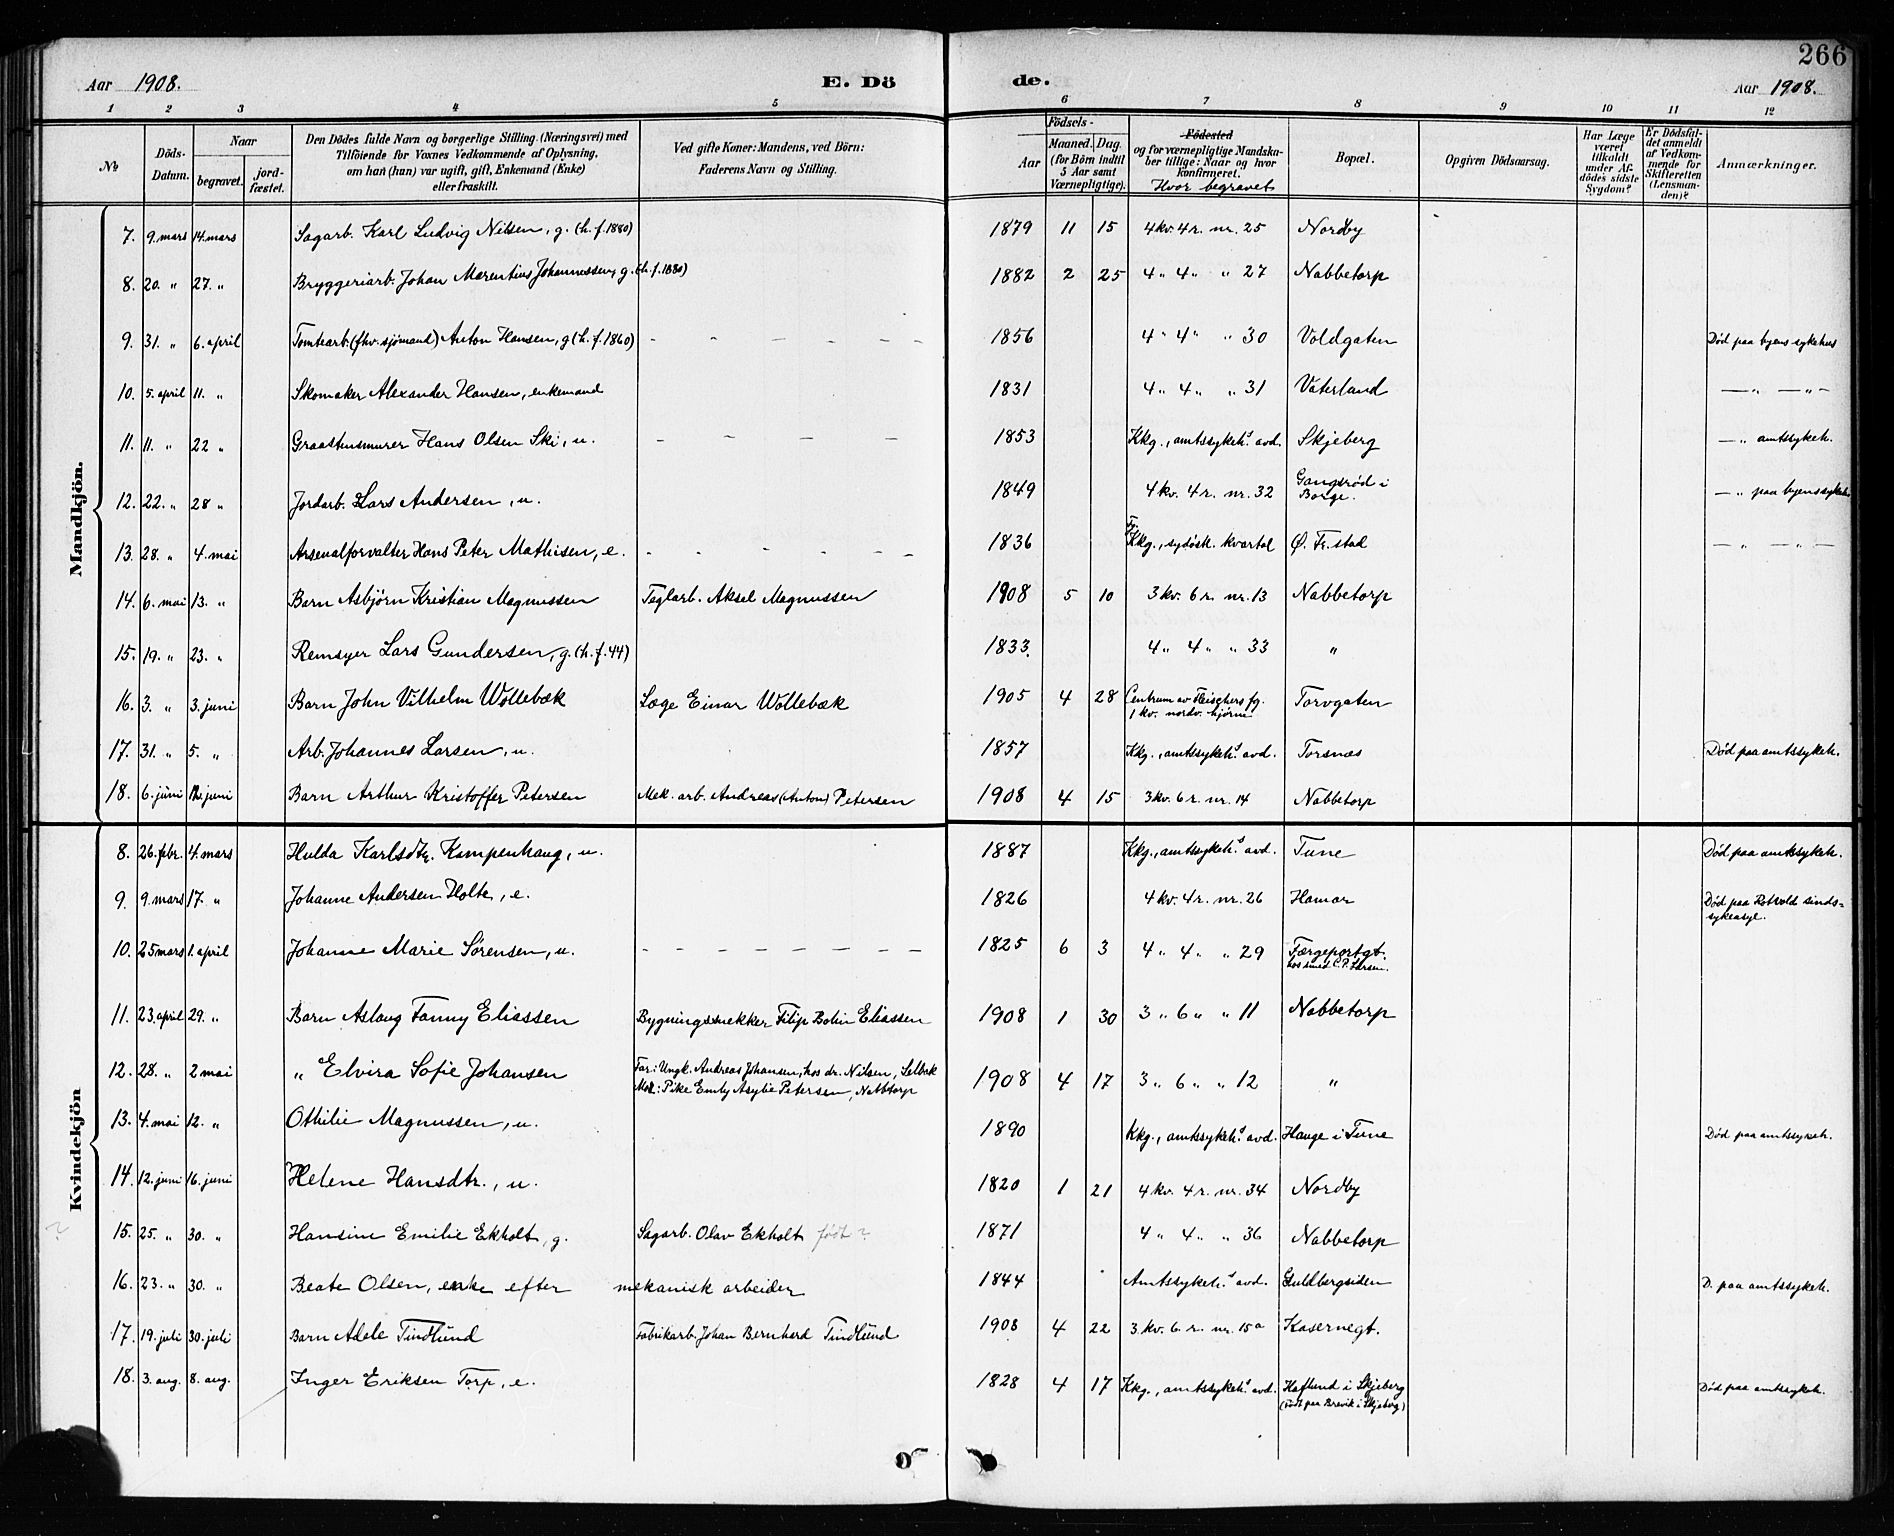 266
Aar 1908. E. Dö de. Aar 1908.
1 2 3 4 5 6 7 8 9 10 11 12
№ Döds-Datum. Naar begravet. jord-fæstet. Den Dödes fulde Navn og borgerlige Stilling (Næringsvei) med Tilföiende for Voxnes Vedkommende af Oplysning, om han (hun) var ugift, gift, Enkemand (Enke) eller fraskilt. Ved gifte Koner: Mandens, ved Börn: Faderens Navn og Stilling. Födsels- Aar Maaned. Dag. (for Börn indtil 5 Aar samt Værnepligtige). Födested og for værnepligtige Mandskaber tillige: Naar og hvor konfirmeret. Hvor begravet Bopæl. Opgiven Dödsaarsag. Har Læge været tilkaldt under Afdödes sidste Sygdom? Er Dödsfaldet anmeldt af Vedkommende for Skifteretten (Lensmanden)? Anmærkninger.
Mandkjön.
7. 9. mars 14. mars Sagarb. Karl Ludvig Nilsen, g. (h. f. 1880) 1879 11 15 4 kv. 4 r. nr. 25 Nordby
8. 20. " 27. " Bryggeriarb. Johan Marentius Johannessen, g. (h. f. 1880) 1882 2 25 4 " 4 " " 27 Nabbetorp
9. 31. " 6. april Tomtearb. (fhv. sjømand) Anton Hansen, g (h. f. 1860) - - - - - - 1856 4 " 4 " " 30 Voldgaten Død paa byens sykehus
10. 5. april 11. " Skomaker Alexander Hansen, enkemand 1831 4 " 4 " " 31 Vaterland — " — " —
11. 11. " 22 " Graastensmurer Hans Olsen Ski, u. - - - - 1853 Kkg., amtssykeh.s avd. Skjeberg — " amtssykeh.
12. 22. " 28 " Jordarb. Lars Andersen, u. 1849 4 kv. 4 r. nr. 32 Gangsrød i Borge. — " paa byens sykehus
13. 28. " 4. mai Arsenalforvalter Hans Peter Mathisen, e. - - - - - - 1836 Fr. Kkg., sydøstk. kvartal Ø. Fr.stad — " — " —
14. 6. mai 13. " Barn Asbjörn Kristian Magnussen Teglarb. Aksel Magnussen 1908 5 10 3 kv. 6 r. nr. 13 Nabbetorp
15. 19. " 23. " Remsyer Lars Gundersen, g. (h. f. 44) 1833. 4 " 4 " " 33 "
16. 3. " 3. juni Barn John Vilhelm Wøllebæk Læge Einar Wøllebæk 1905 4 28 Centrum av Fleischers fg. 1 kv. nordv. hjørne Torvgaten
17. 31. " 5. " Arb. Johannes Larsen, u. 1857 Kkg., amtssykeh.s avd. Torsnæs Død paa amtssykeh.
18. 6. juni 12. juni Barn Arthur Kristoffer Petersen Mek. arb. Andreas (Anton) Petersen 1908 4 15 3 kv. 6 r. nr. 14 Nabbetorp
Kvindekjön
8. 26. febr. 4. mars Hulda Karlsdtr. Kampenhaug, u. 1887 Kkg., amtssykeh.s avd. Tune Død paa amtssykeh.
9. 9. mars 17. " Johanne Andersen Holte, e. 1826 4 kv. 4 r. nr. 26 Hamar Død paa Rotvold sinds-
sykeasyl.
10. 25 mars 1. april Johanne Marie Sørensen, u. - - - - - - 1825 6 3 4 " 4 " " 29 Færgeportgt.
hos smed C. P. Larsen.
11. 23. april 29. " Barn Aslaug Fanny Eliassen Bygningssnekker Filip Bolin Eliassen 1908 1 30 3 " 6 " " 11 Nabbetorp
12. 28. " 2 mai " Elvira Sofie Johansen Far: Ungk. Andreas Johansen, hos dr. Nilsen, Selbak
Mor: Pike Emly Asylie Petersen, Nabbtorp 1908 4 17 3 " 6 " " 12 "
13. 4. mai 12. " Othilie Magnussen, u. 1890 Kkg., amtssykeh.s avd. Hauge i Tune Død paa amtssykeh.
14. 12. juni 16. juni Helene Hansdtr., u. 1820 1 21 4 kv. 4 r. nr. 34 Nordby
? 15. 25. " 30. " Hansine Emilie Ekholt, g. Sagarb. Olav Ekholt født? 1871 4 " 4 " " 36 Nabbetorp
16. 23. " 30. " Beate Olsen, enke efter mekanisk arbeider 1844 Amtssykeh.s avd. Guldbergsiden D. paa amtssykeh.
17. 19. juli 30. juli Barn Adele Tindlund Fabrikarb. Johan Bernhard Tindlund 1908 4 22 3. kv. 6. r. nr. 15a Kasernegt.
18. 3. aug. 8. aug. Inger Eriksen Torp, e. 1828 4 17 Kkg., amtssykeh.s avd. Haflund i Skjeberg
(født paa Brevik i Skjeberg) Død paa amtssykeh.